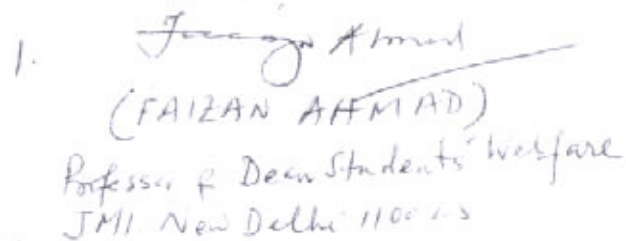 1. Faizan Ahmad
(FAIZAN AHMAD)
Professor & Dean Students' Welfare
JMI New Delhi 110025